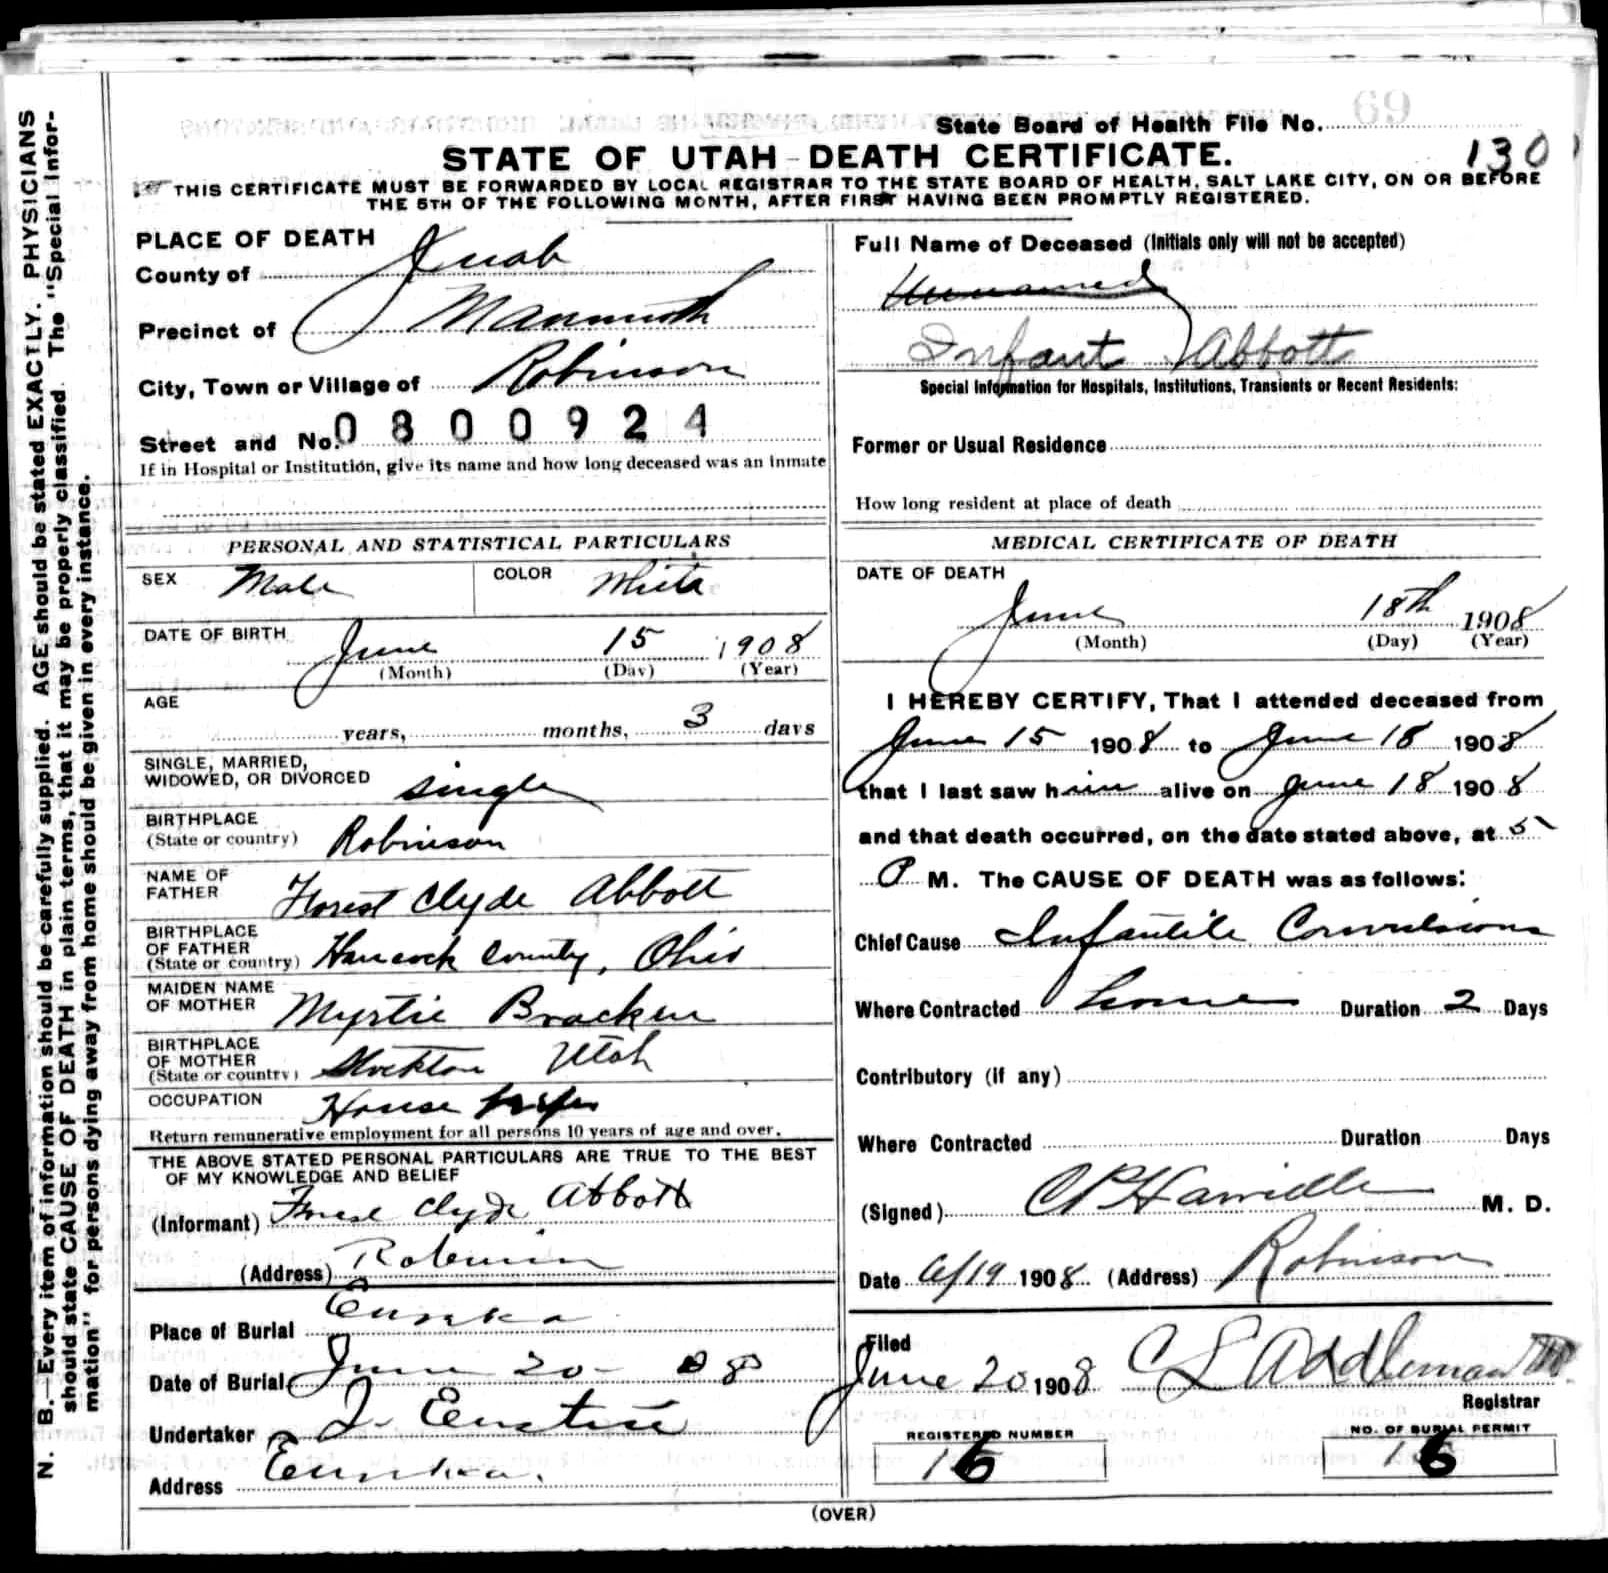 69
State Board of Health File No.
STATE OF UTAH - DEATH CERTIFICATE. 130
THIS CERTIFICATE MUST BE FORWARDED BY LOCAL REGISTRAR TO THE STATE BOARD OF HEALTH, SALT LAKE CITY, ON OR BEFORE
THE 5TH OF THE FOLLOWING MONTH, AFTER FIRST HAVING BEEN PROMPTLY REGISTERED.
N. B.—Every item of information should be carefully supplied. AGE should be stated EXACTLY. PHYSICIANS
should state CAUSE OF DEATH in plain terms, that it may be properly classified. The "Special Infor-
mation" for persons dying away from home should be given in every instance.
PLACE OF DEATH
County of Juab
Precinct of Mammoth
City, Town or Village of Robinson
Street and No. 0800924
If in Hospital or Institution, give its name and how long deceased was an inmate
PERSONAL AND STATISTICAL PARTICULARS
SEX Male COLOR White
DATE OF BIRTH June 15 1908
(Month) (Day) (Year)
AGE
years, months, 3 days
SINGLE, MARRIED,
WIDOWED, OR DIVORCED single
BIRTHPLACE
(State or country) Robinson
NAME OF
FATHER Forest Clyde Abbott
BIRTHPLACE
OF FATHER
(State or country) Hancock County, Ohio
MAIDEN NAME
OF MOTHER Myrtie Bracken
BIRTHPLACE
OF MOTHER
(State or country) Stockton Utah
OCCUPATION House wife
Return remunerative employment for all persons 10 years of age and over.
THE ABOVE STATED PERSONAL PARTICULARS ARE TRUE TO THE BEST
OF MY KNOWLEDGE AND BELIEF
(Informant) Forest Clyde Abbott
(Address) Robinson
Place of Burial Eureka
Date of Burial June 20 - 08
Undertaker J.
Address Eureka.
Full Name of Deceased (Initials only will not be accepted)
Unnamed
Infant Abbott
Special Information for Hospitals, Institutions, Transients or Recent Residents:
Former or Usual Residence
How long resident at place of death
MEDICAL CERTIFICATE OF DEATH
DATE OF DEATH
June 18th 1908
(Month) (Day) (Year)
I HEREBY CERTIFY, That I attended deceased from
June 15 1908 to June 18 1908
that I last saw him alive on June 18 1908
and that death occurred, on the date stated above, at 5
P M. The CAUSE OF DEATH was as follows:
Chief Cause Infantile Convulsions
Where Contracted home Duration 2 Days
Contributory (if any)
Where Contracted Duration Days
(Signed) M. D.
Date 6/19 1908 (Address) Robinson
Filed
June 20 1908 C L Addleman MD.
Registrar
REGISTERED NUMBER NO. OF BURIAL PERMIT
16 16
(OVER)